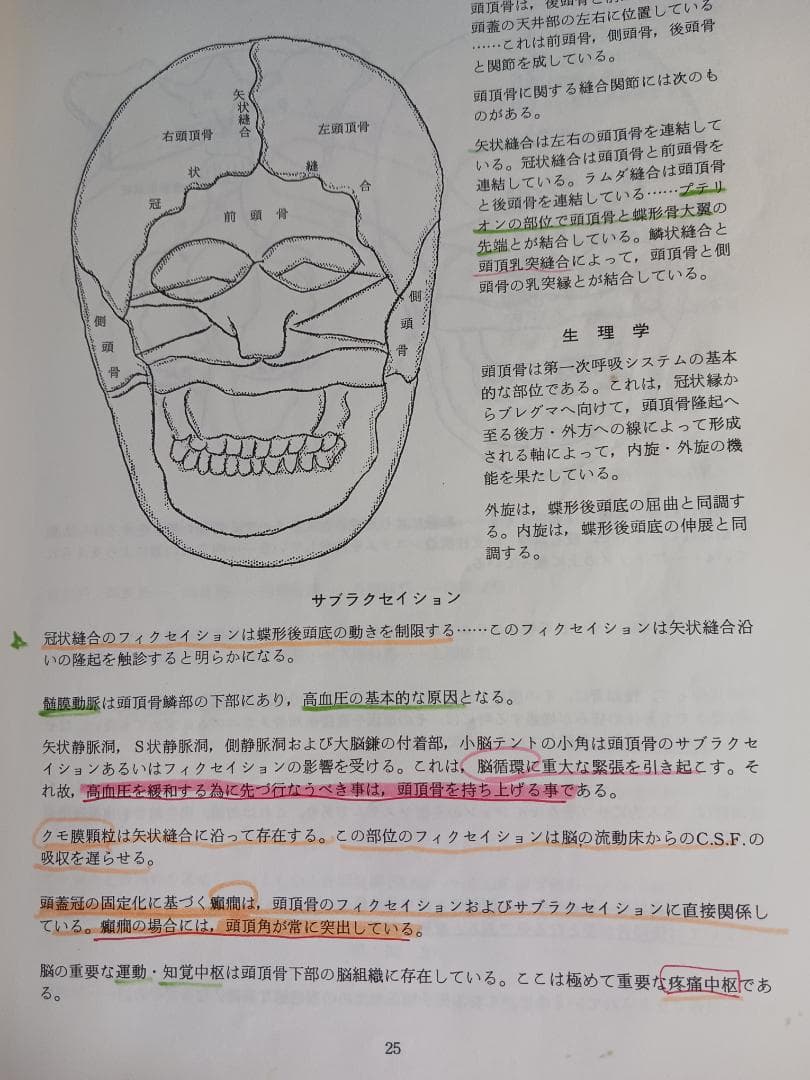 頭頂骨は，後頭骨と前頭
頭蓋の天井部の左右に位置している
……これは前頭骨，側頭骨，後頭骨
と関節を成している。
頭頂骨に関する縫合関節には次のも
のがある。
矢状縫合は左右の頭頂骨を連結して
いる。冠状縫合は頭頂骨と前頭骨を
連結している。ラムダ縫合は頭頂骨
と後頭骨を連結している……プテリ
オンの部位で頭頂骨と蝶形骨大翼の
先端とが結合している。鱗状縫合と
頭頂乳突縫合によって，頭頂骨と側
頭骨の乳突縁とが結合している。
矢状縫合
右頭頂骨
左頭頂骨
冠状縫合
前頭骨
側頭骨
側頭骨
生理学
頭頂骨は第一次呼吸システムの基本
的な部位である。これは，冠状縁か
らブレグマへ向けて，頭頂骨隆起へ
至る後方・外方への線によって形成
される軸によって，内旋・外旋の機
能を果たしている。
外旋は，蝶形後頭底の屈曲と同調す
る。内旋は，蝶形後頭底の伸展と同
調する。
サブラクセイション
冠状縫合のフィクセイションは蝶形後頭底の動きを制限する……このフィクセイションは矢状縫合沿
いの隆起を触診すると明らかになる。
髄膜動脈は頭頂骨鱗部の下部にあり，高血圧の基本的な原因となる。
矢状静脈洞，S状静脈洞，側静脈洞および大脳鎌の付着部，小脳テントの小角は頭頂骨のサブラクセ
イションあるいはフィクセイションの影響を受ける。これは，脳循環に重大な緊張を引き起こす。そ
れ故，高血圧を緩和する為に先づ行なうべき事は，頭頂骨を持ち上げる事である。
クモ膜顆粒は矢状縫合に沿って存在する。この部位のフィクセイションは脳の流動床からのC.S.F.の
吸収を遅らせる。
頭蓋冠の固定化に基づく癲癇は，頭頂骨のフィクセイションおよびサブラクセイションに直接関係し
ている。癲癇の場合には，頭頂角が常に突出している。
脳の重要な運動・知覚中枢は頭頂骨下部の脳組織に存在している。ここは極めて重要な疼痛中枢であ
る。
25